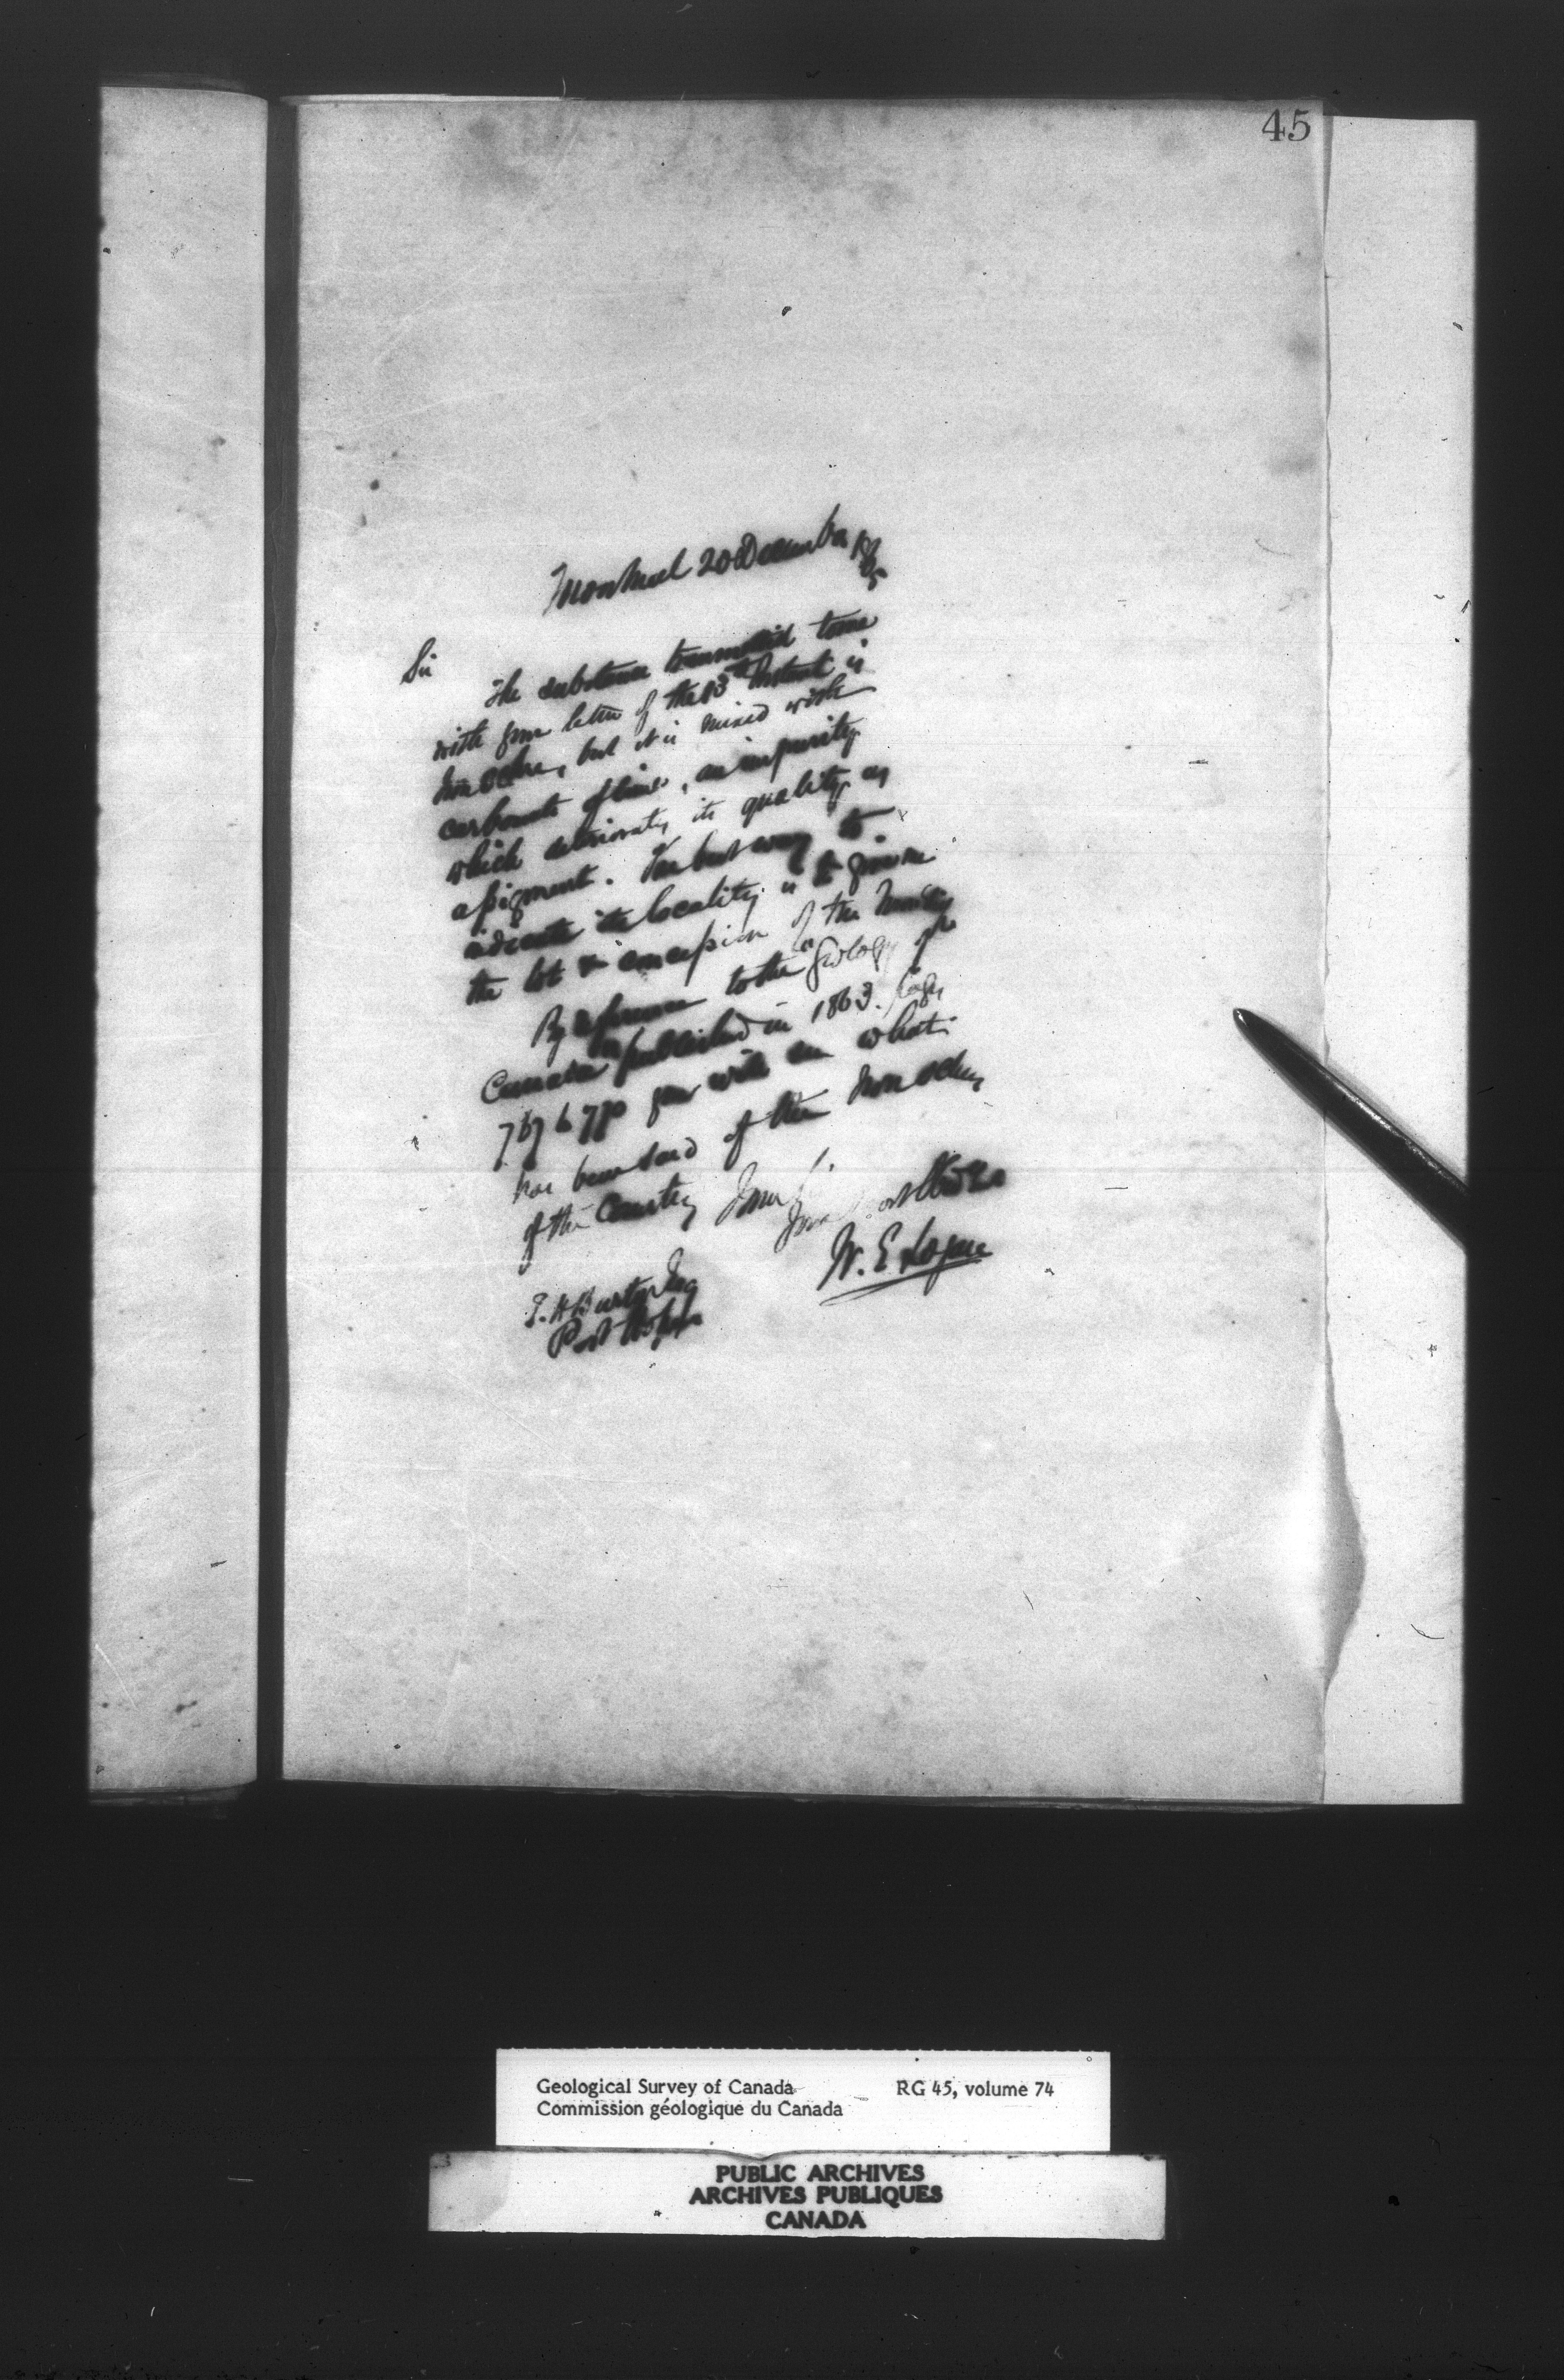 45
Montreal 20 December 1865
Sir
The substance transmitted to me
with your letter of the 13th Instant is
Iron Ochre, but it is mixed with
carbonate of lime, an impurity
which deteriorates its quality as
a pigment. The best way to
indicate the locality is to give me
the lot & concession of the
By reference to the "Geology of
Canada" published in 1863. Pages
you will see what
has been said of the Iron ochres
of the Country
W. E. Logan
T. H Burton Esq
Port Hope
Geological Survey of Canada RG 45, volume 74
Commission géologique du Canada
PUBLIC ARCHIVES
ARCHIVES PUBLIQUES
CANADA